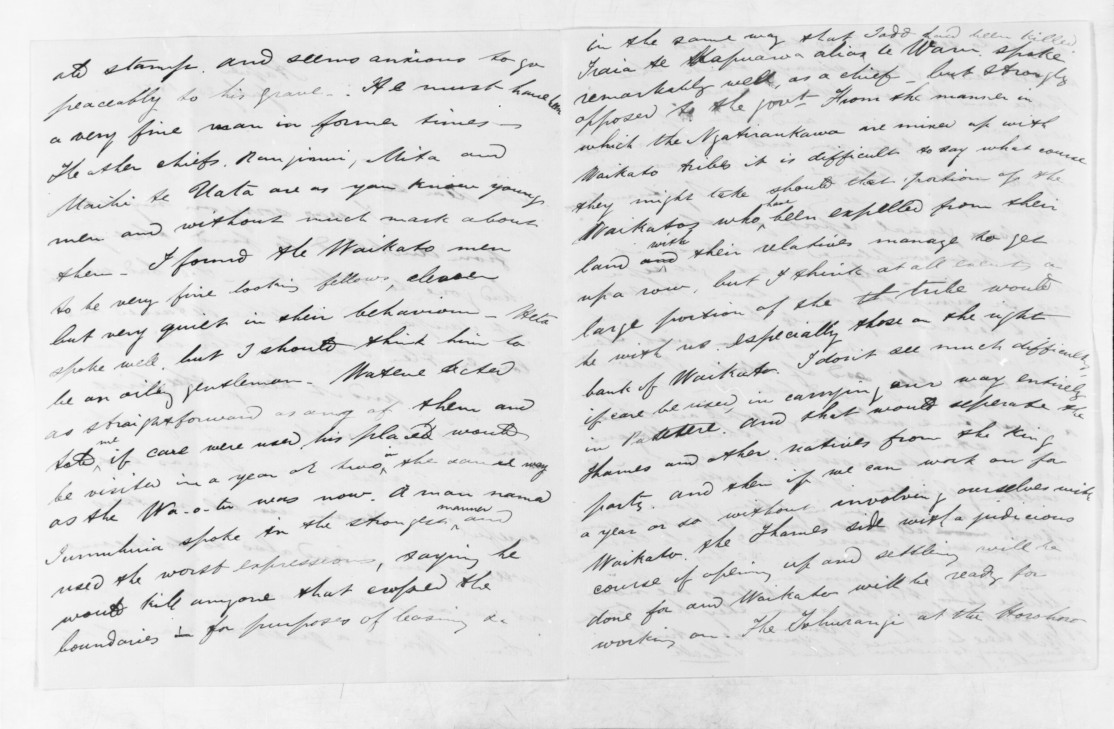 old stamp. and seems anxious to go
peaceably to his grave - He must have been
a very fine man in former times -
The other chiefs. Rangiawi, Mita and
Maihi te Uata are as you know young
men and without much mark about
them - I found the Waikato men
to be very fine looking fellows,
but very quiet in their behaviour -
spoke well. but I should think him to
be an oily gentleman - Watene acted
as straightforward as any of them and
told me, if care were used, his place would
be visited in a year or two in the same way
as the Wa-o-tu was now. A man named
spoke in the strongest manner and
used the worst expressions, saying he
would kill anyone that crossed the
boundaries - for purposes of leasing &c
in the same way that Todd had been killed
Iraia te alias te Waru spoke
remarkably well, as a chief but strongly
opposed to the govt. From the manner in
which the Ngatiraukawa are mixed up with
Waikato tribes it is difficult to say what course
they might take should that portion of the
Waikatos who have been expelled from their
land with their relatives manage to get
up a row, but I think at all events a
large portion of the tribe would
be with us especially those on the right
bank of Waikato. I dont see much difficulty,
if care be used in carrying our way entirely
in Patetere. and that would seperate the
Thames and other natives from the King
party. and then if we can work on for
a year or so without involving ourselves with
Waikato the Thames side with a judicious
course of opening up and settling will be
done for and Waikato will be ready for
working on. The at the Horohoro